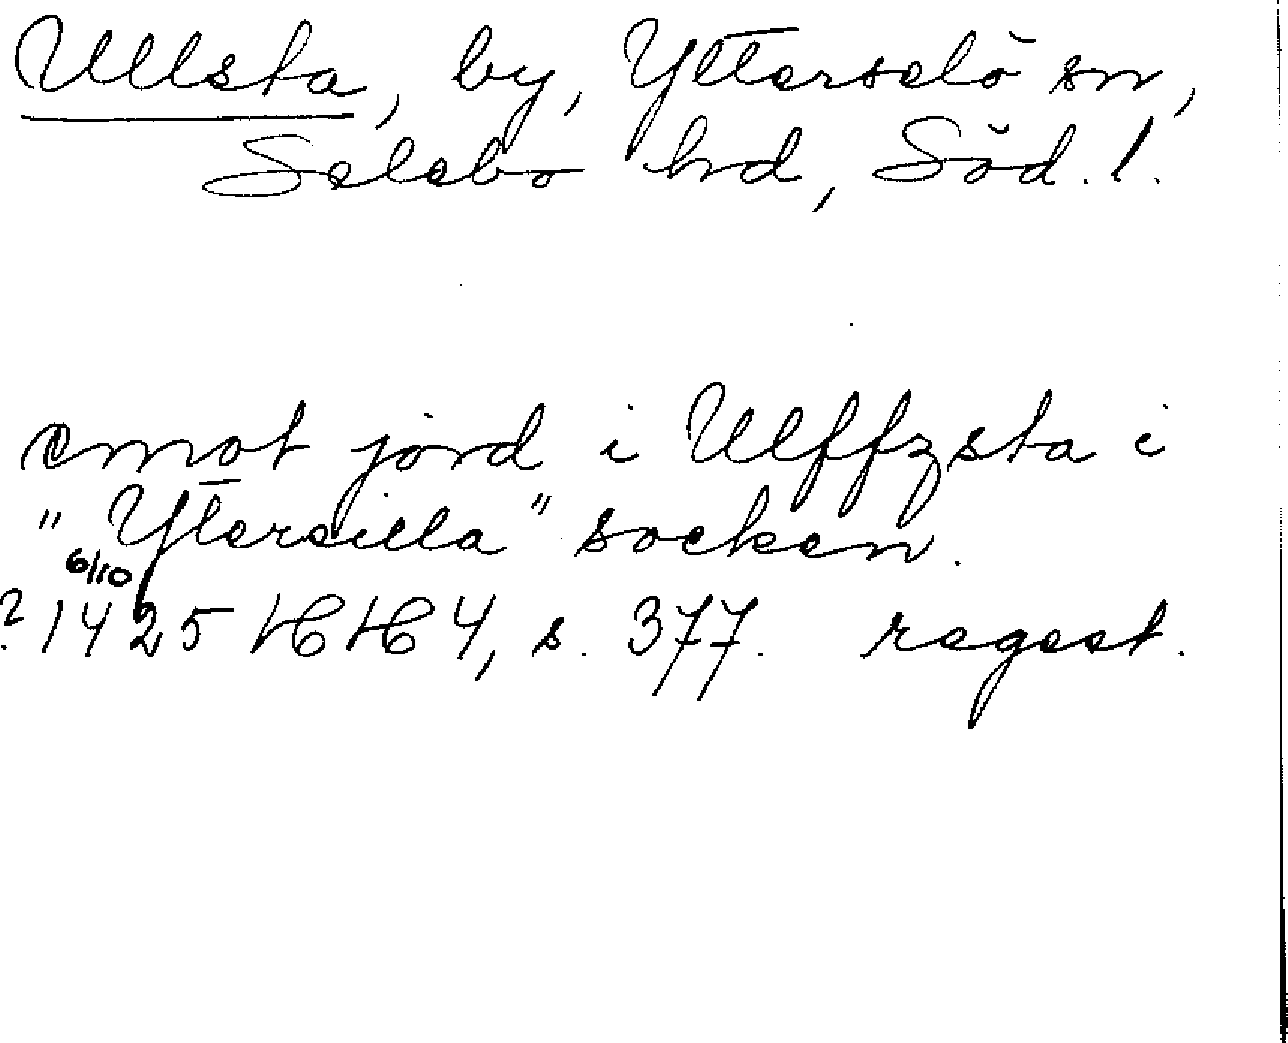 Ullsta, by, Ytterselö sn,
Selebo hd, Söd. l.
emot jord i Ulffzsta i
"Yterailla" socken.
6/10
? 1425 HH 4, s. 377. regest.